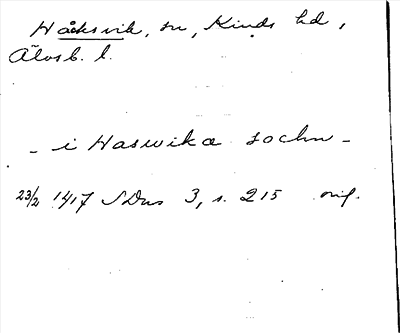 Håcksvik, sn, Kinds hd,
Älvsb. l.
- i Haswika sochn -
23/2 1417 SDns 3, s. 215 orig.